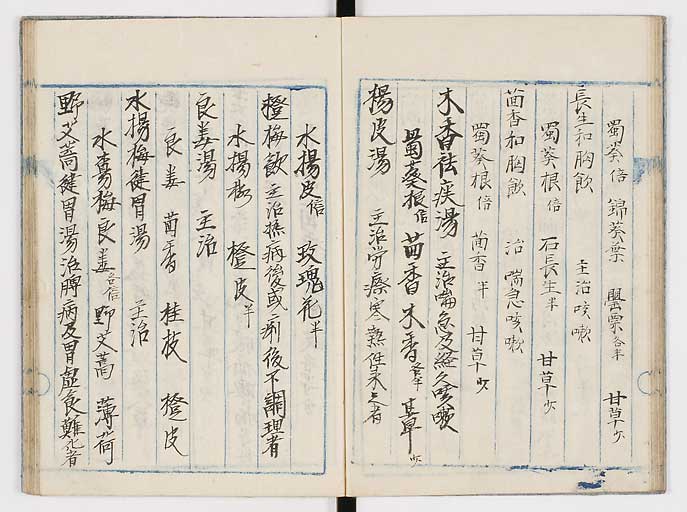 蜀葵倍 錦葵葉 罌粟各半 甘草少
長生和胸飲 主治咳嗽
蜀葵根倍 石長生半 甘草少
茴香和胸飲 治喘急咳嗽
蜀葵根倍 茴香半 甘草少
木香祛痰湯 主治喘急及経久咳嗽
蜀葵根倍 茴香 木香各半 甘草少
楊皮湯 主治労瘵寒熱往来者
水楊皮倍 玫瑰花半
橙梅飲 主治熱病後或痢後不調理者
水楊梅 橙皮半
良姜湯 主治
良姜 茴香 桂枝 橙皮
水楊梅健胃湯 主治
水楊梅 良姜各倍 野艾蒿 薄荷
野艾蒿健胃湯 治脾病及胃虚食難化者